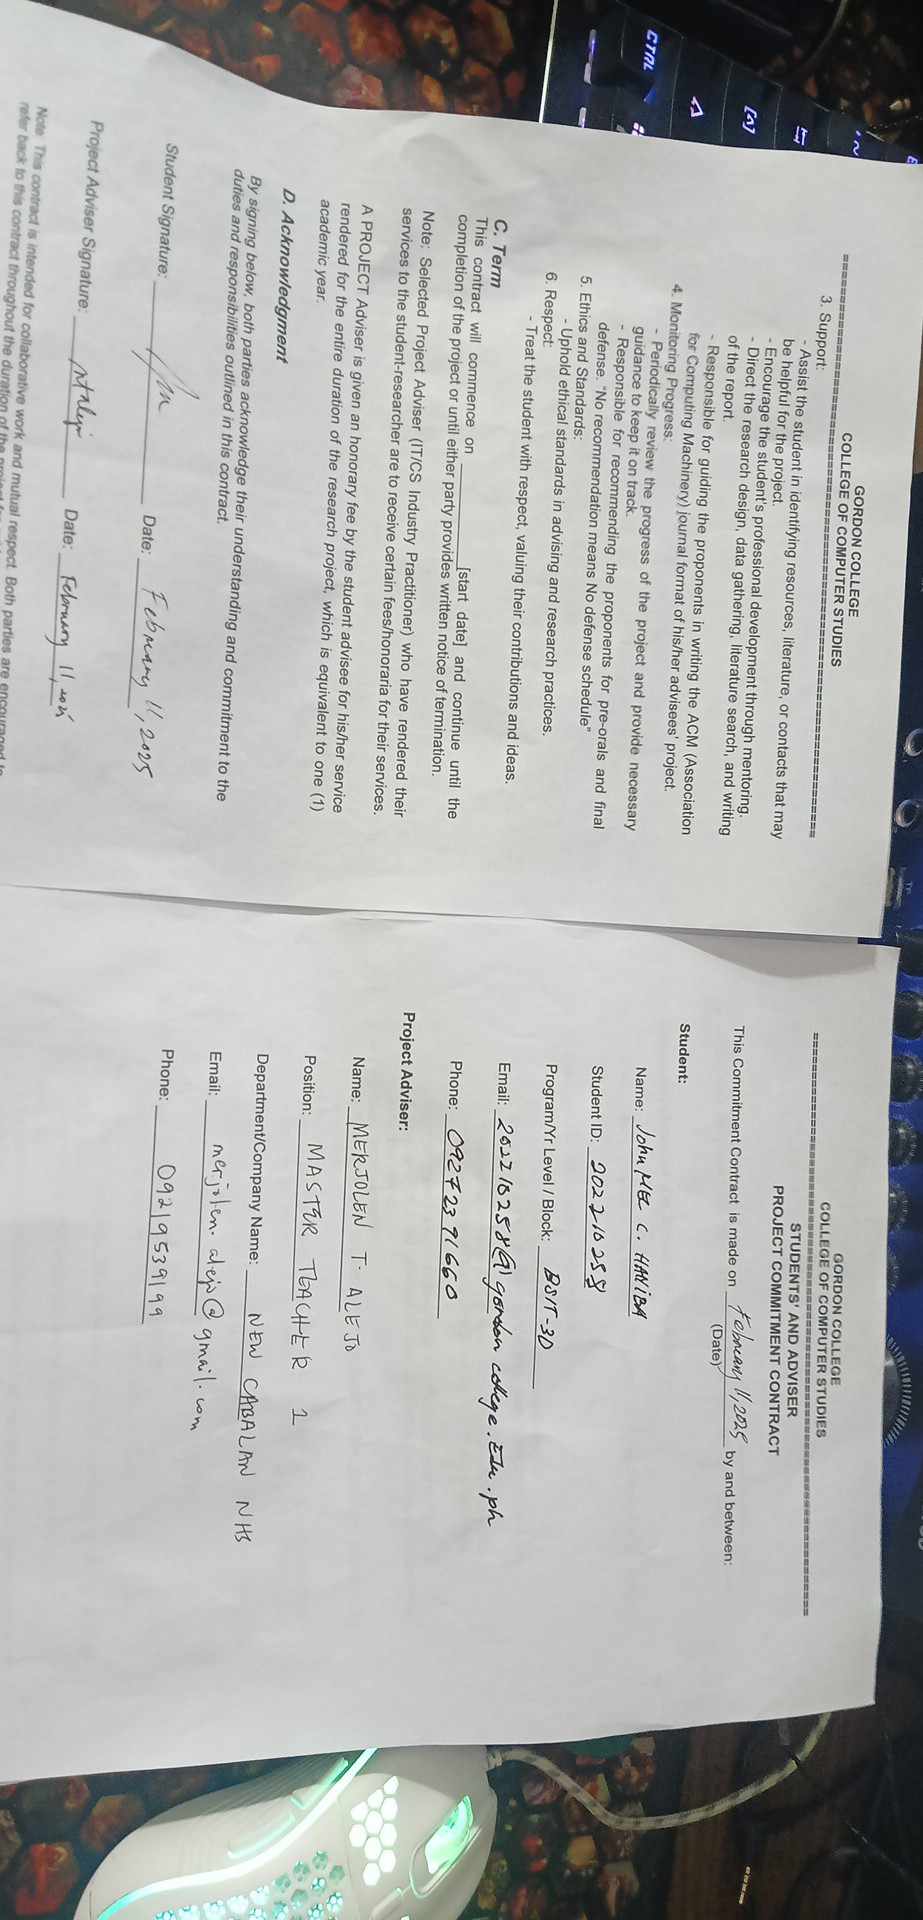 GORDON COLLEGE
COLLEGE OF COMPUTER STUDIES
3. Support:
- Assist the student in identifying resources, literature, or contacts that may
be helpful for the project.
- Encourage the student's professional development through mentoring.
- Direct the research design, data gathering, literature search, and writing
of the report.
- Responsible for guiding the proponents in writing the ACM (Association
for Computing Machinery) journal format of his/her advisees' project.
4. Monitoring Progress:
- Periodically review the progress of the project and provide necessary
guidance to keep it on track.
- Responsible for recommending the proponents for pre-orals and final
defense. "No recommendation means No defense schedule"
5. Ethics and Standards:
- Uphold ethical standards in advising and research practices.
6. Respect:
- Treat the student with respect, valuing their contributions and ideas.
C. Term
This contract will commence on ____________[start date] and continue until the
completion of the project or until either party provides written notice of termination.
Note: Selected Project Adviser (IT/CS Industry Practitioner) who have rendered their
services to the student-researcher are to receive certain fees/honoraria for their services.
A PROJECT Adviser is given an honorary fee by the student advisee for his/her service
rendered for the entire duration of the research project, which is equivalent to one (1)
academic year.
D. Acknowledgment
By signing below, both parties acknowledge their understanding and commitment to the
duties and responsibilities outlined in this contract.
Student Signature: Date: February 11, 2025
Project Adviser Signature: Date: February 11, 2025
Note: This contract is intended for collaborative work and mutual respect. Both parties are encouraged to
refer back to this contract throughout the duration of the project
GORDON COLLEGE
COLLEGE OF COMPUTER STUDIES
STUDENTS' AND ADVISER
PROJECT COMMITMENT CONTRACT
This Commitment Contract is made on February 11, 2025 by and between:
(Date)
Student:
Name: John Mel C. Haniba
Student ID: 202210258
Program/Yr Level / Block: BSIT-3D
Email: 202210258@gordon college.edu.ph
Phone: 09272391660
Project Adviser:
Name: MERJOLEN T. ALEJO
Position: MASTER TEACHER 1
Department/Company Name: NEW CABALAN NHS
Email: merjolen.alejo@gmail.com
Phone: 09219539199
CTRL